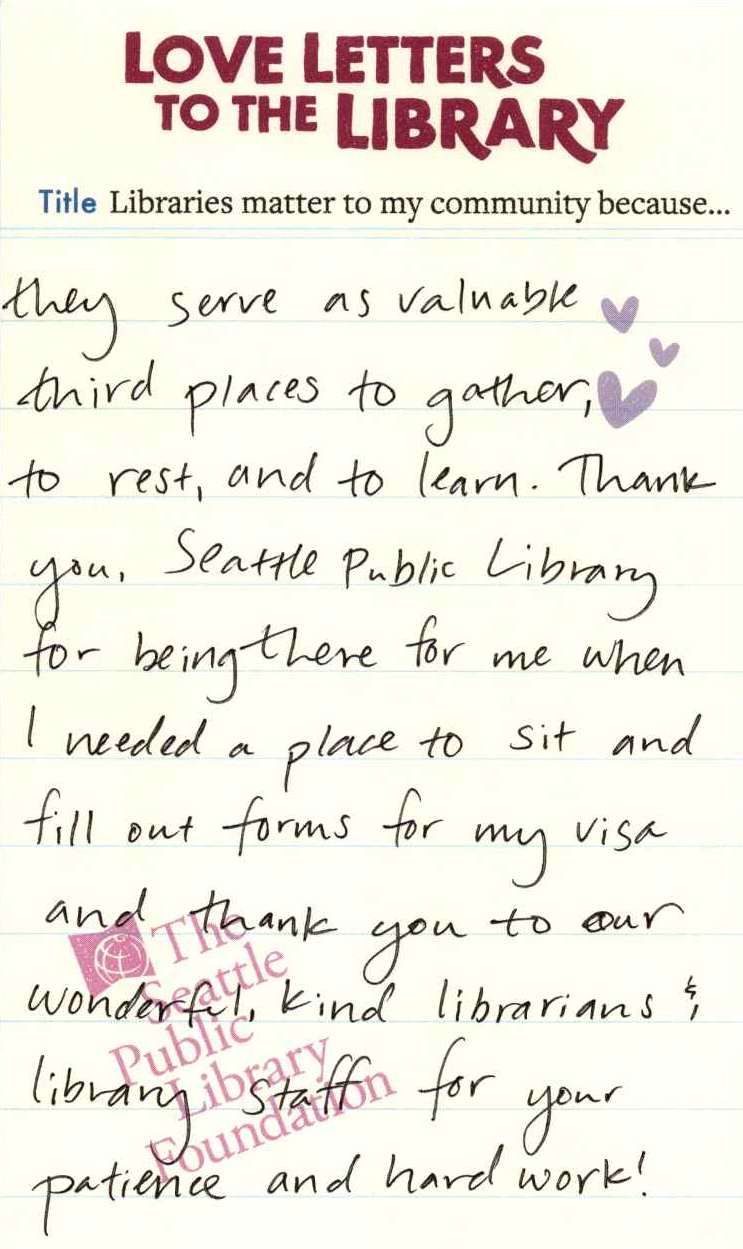 LOVE LETTERS
TO THE LIBRARY
Title Libraries matter to my community because...
they serve as valuable
third places to gather,
to rest, and to learn. Thank
you, Seattle Public Library
for being there for me when
I needed a place to sit and
fill out forms for my visa
and thank you to our
wonderful, kind librarians &
library staff for your
patience and hard work!
The
Seattle
Public
Library
Foundation